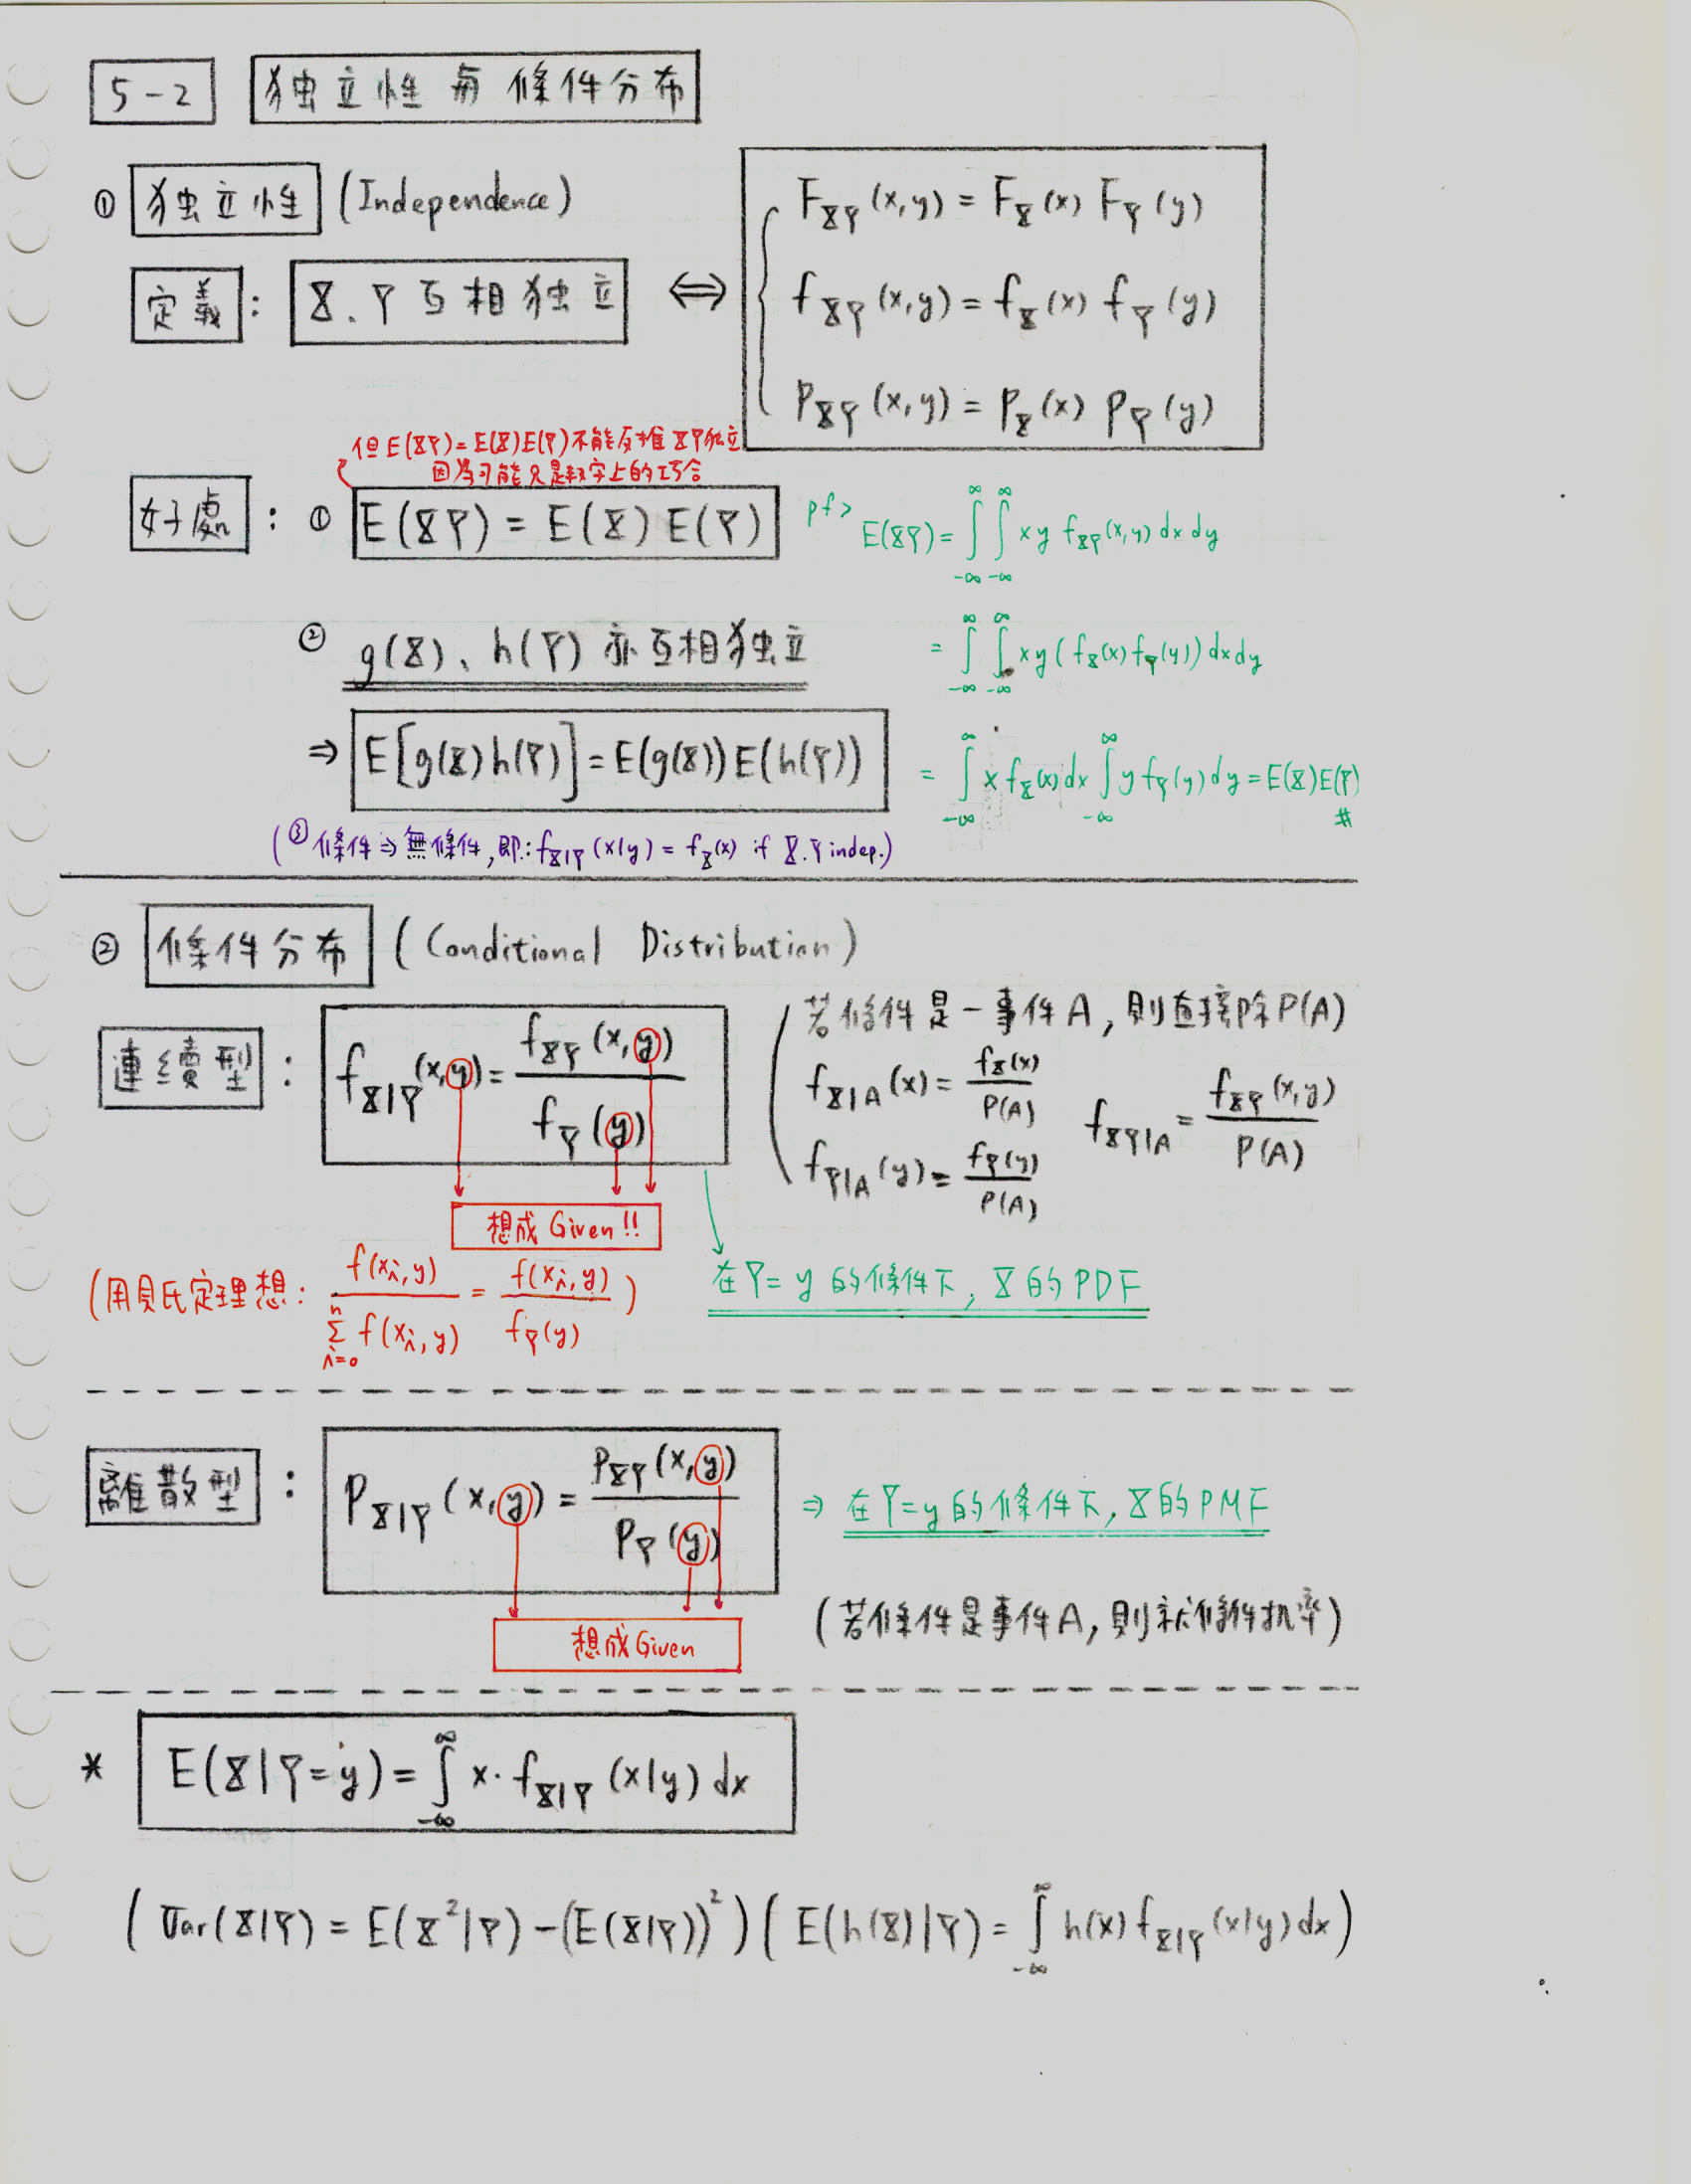 5-2 独立性與條件分布
① 独立性 (Independence)
定義: X、Y 互相独立 ⇔
F_XY (x,y) = F_X (x) F_Y (y)
f_XY (x,y) = f_X (x) f_Y (y)
P_XY (x,y) = P_X (x) P_Y (y)
但 E(XY)=E(X)E(Y) 不能反推 XY独立
因為可能只是数字上的巧合
好處: ① E(XY) = E(X) E(Y)
pf> E(XY) = ∫_{-∞}^{∞} ∫_{-∞}^{∞} xy f_XY(x,y) dx dy
= ∫_{-∞}^{∞} ∫_{-∞}^{∞} xy (f_X(x) f_Y(y)) dx dy
= ∫_{-∞}^{∞} x f_X(x) dx ∫_{-∞}^{∞} y f_Y(y) dy = E(X)E(Y)
#
② g(X)、h(Y) 亦互相独立
⇒ E[g(X)h(Y)] = E(g(X)) E(h(Y))
(③ 條件⇒無條件, 即: f_X|Y (x|y) = f_X(x) if X.Y indep.)
② 條件分布 (Conditional Distribution)
連續型: f_X|Y (x,y) = f_XY (x,y) / f_Y (y)
想成 Given!!
若條件是一事件A, 則直接除P(A)
f_X|A (x) = f_X(x) / P(A)
f_Y|A (y) = f_Y(y) / P(A)
f_XY|A = f_XY (x,y) / P(A)
在Y=y 的條件下, X的PDF
(用貝氏定理想: f(x_i,y) / Σ_{i=0}^{n} f(x_i,y) = f(x_i,y) / f_Y(y))
離散型: P_X|Y (x,y) = P_XY (x,y) / P_Y (y)
⇒ 在Y=y的條件下, X的PMF
想成Given
(若條件是事件A, 則求條件机率)
* E(X|Y=y) = ∫_{-∞}^{∞} x· f_X|Y (x|y) dx
(Var(X|Y) = E(X²|Y) - (E(X|Y))²) (E(h(X)|Y) = ∫_{-∞}^{∞} h(x) f_X|Y (x|y) dx)